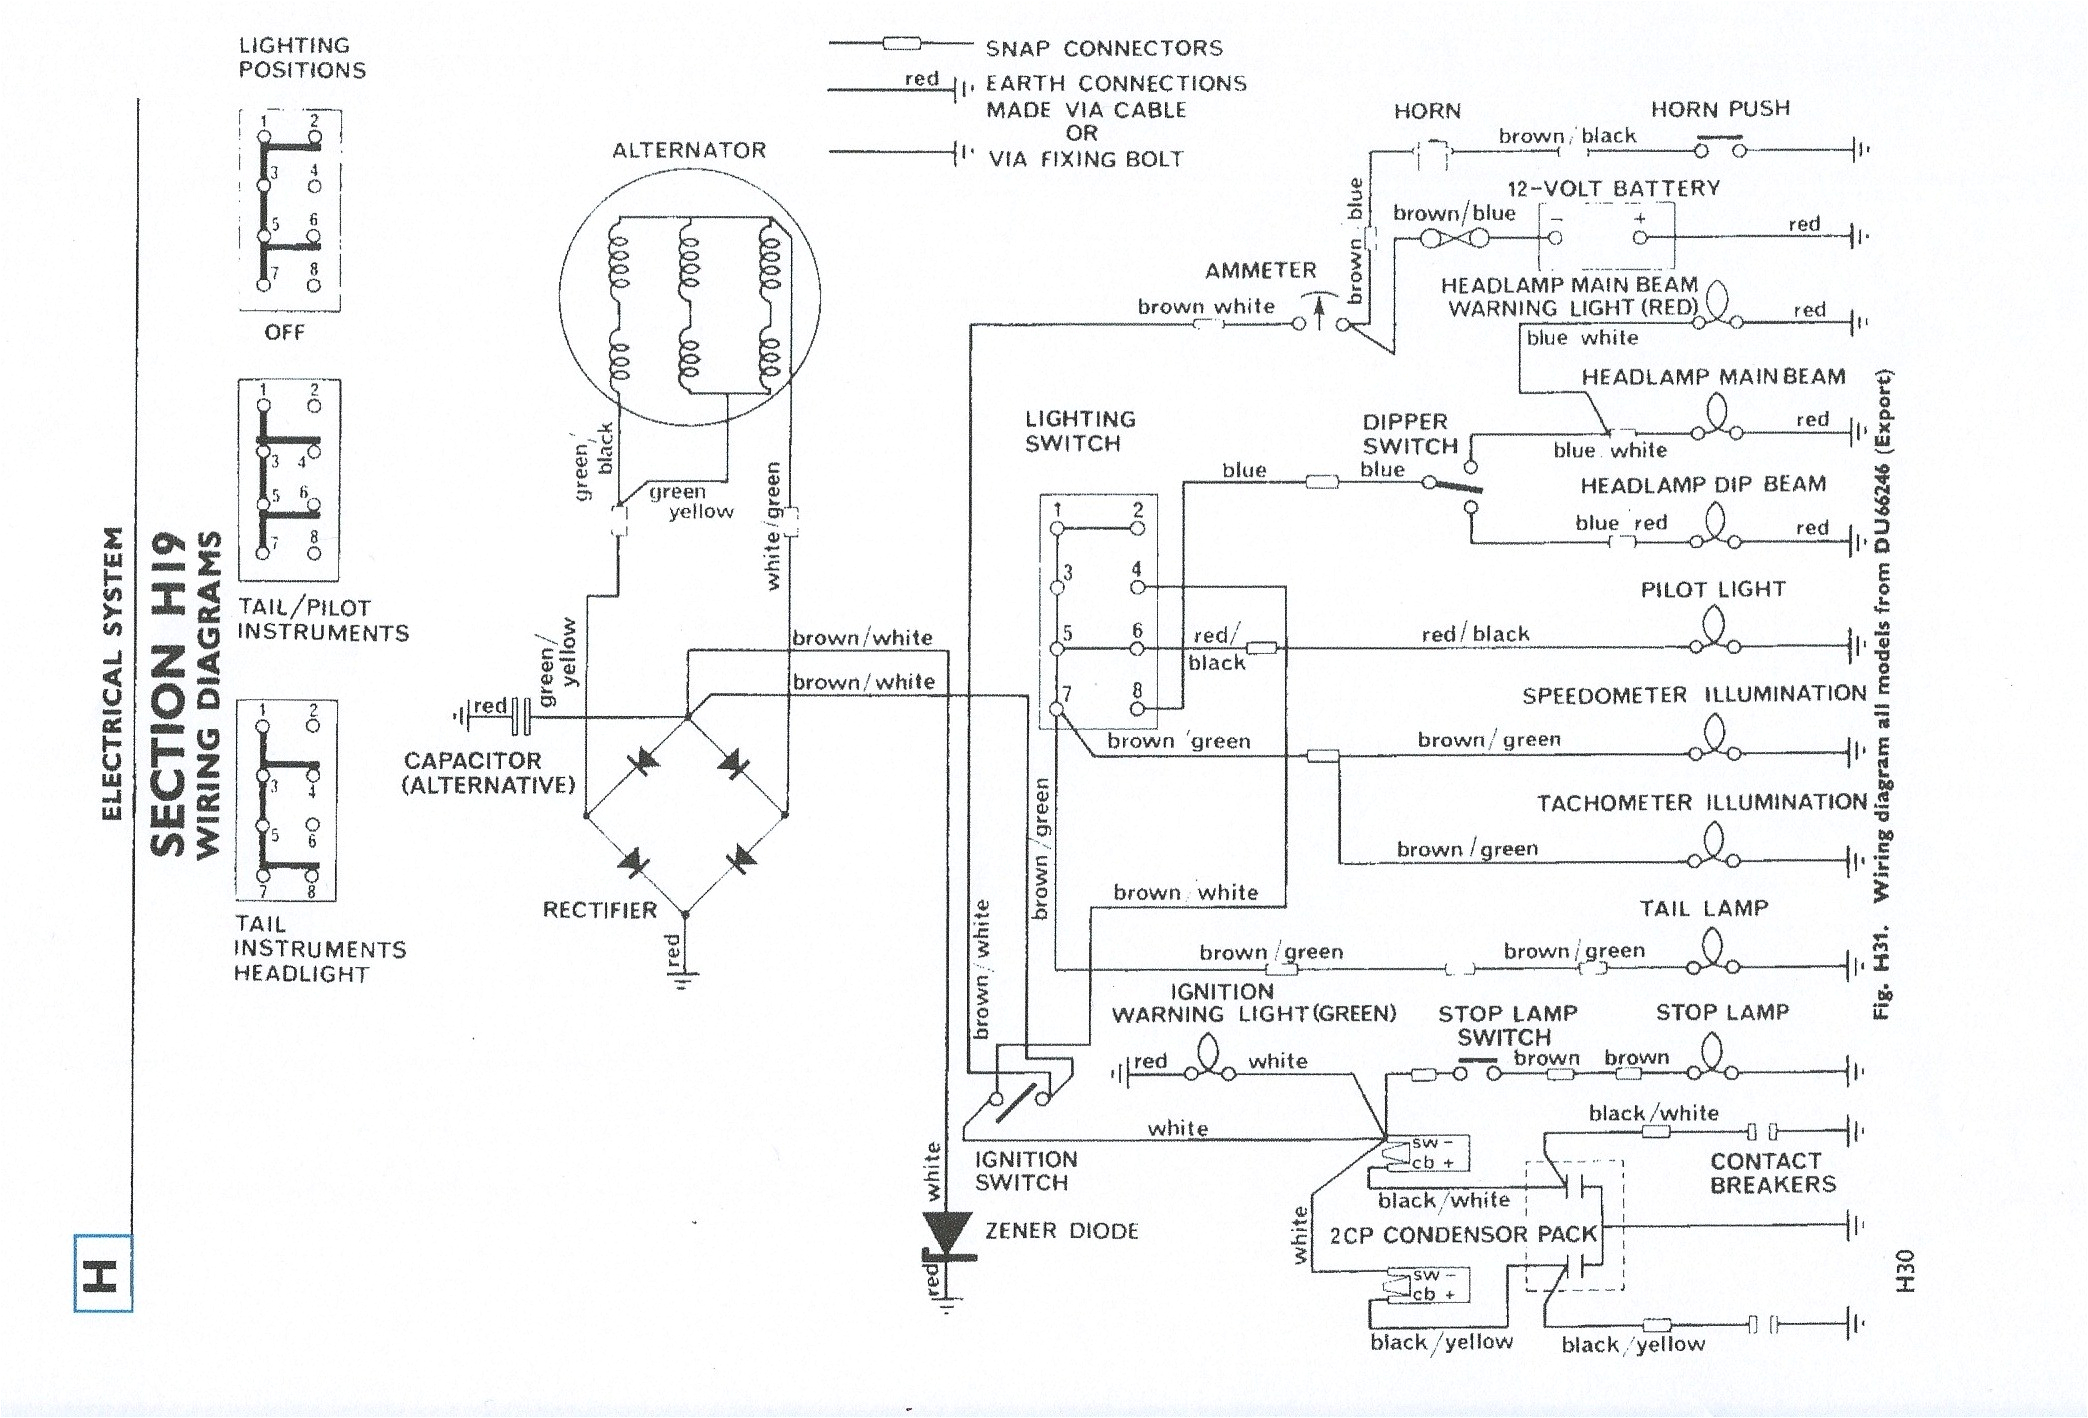 ELECTRICAL SYSTEM
SECTION H19
WIRING DIAGRAMS
H
LIGHTING
POSITIONS
1 2
3 4
5 6
7 8
OFF
1 2
3 4
5 6
7 8
TAIL/PILOT
INSTRUMENTS
1 2
3 4
5 6
7 8
TAIL
INSTRUMENTS
HEADLIGHT
SNAP CONNECTORS
red
EARTH CONNECTIONS
MADE VIA CABLE
OR
VIA FIXING BOLT
ALTERNATOR
green/
black
green
yellow
white/green
green/
yellow
red
CAPACITOR
(ALTERNATIVE)
brown/white
brown/white
RECTIFIER
red
HORN
brown/black
HORN PUSH
brown blue
12-VOLT BATTERY
brown/blue
- +
red
AMMETER
brown white
HEADLAMP MAIN BEAM
WARNING LIGHT (RED)
red
blue white
HEADLAMP MAIN BEAM
red
blue white
LIGHTING
SWITCH
DIPPER
SWITCH
blue
blue
HEADLAMP DIP BEAM
blue red
red
1 2
3 4
5 6
7 8
red/
black
red/black
PILOT LIGHT
SPEEDOMETER ILLUMINATION
brown/green
brown/green
TACHOMETER ILLUMINATION
brown/green
brown/green
brown/white
brown/white
TAIL LAMP
brown/green
brown/green
IGNITION
WARNING LIGHT(GREEN)
red
white
STOP LAMP
SWITCH
brown
brown
STOP LAMP
white
IGNITION
SWITCH
white
ZENER DIODE
red
sw -
cb +
black/white
black/white
CONTACT
BREAKERS
white
2CP CONDENSOR PACK
sw -
cb +
black/yellow
black/yellow
Fig. H31. Wiring diagram all models from DU66246 (Export)
H30